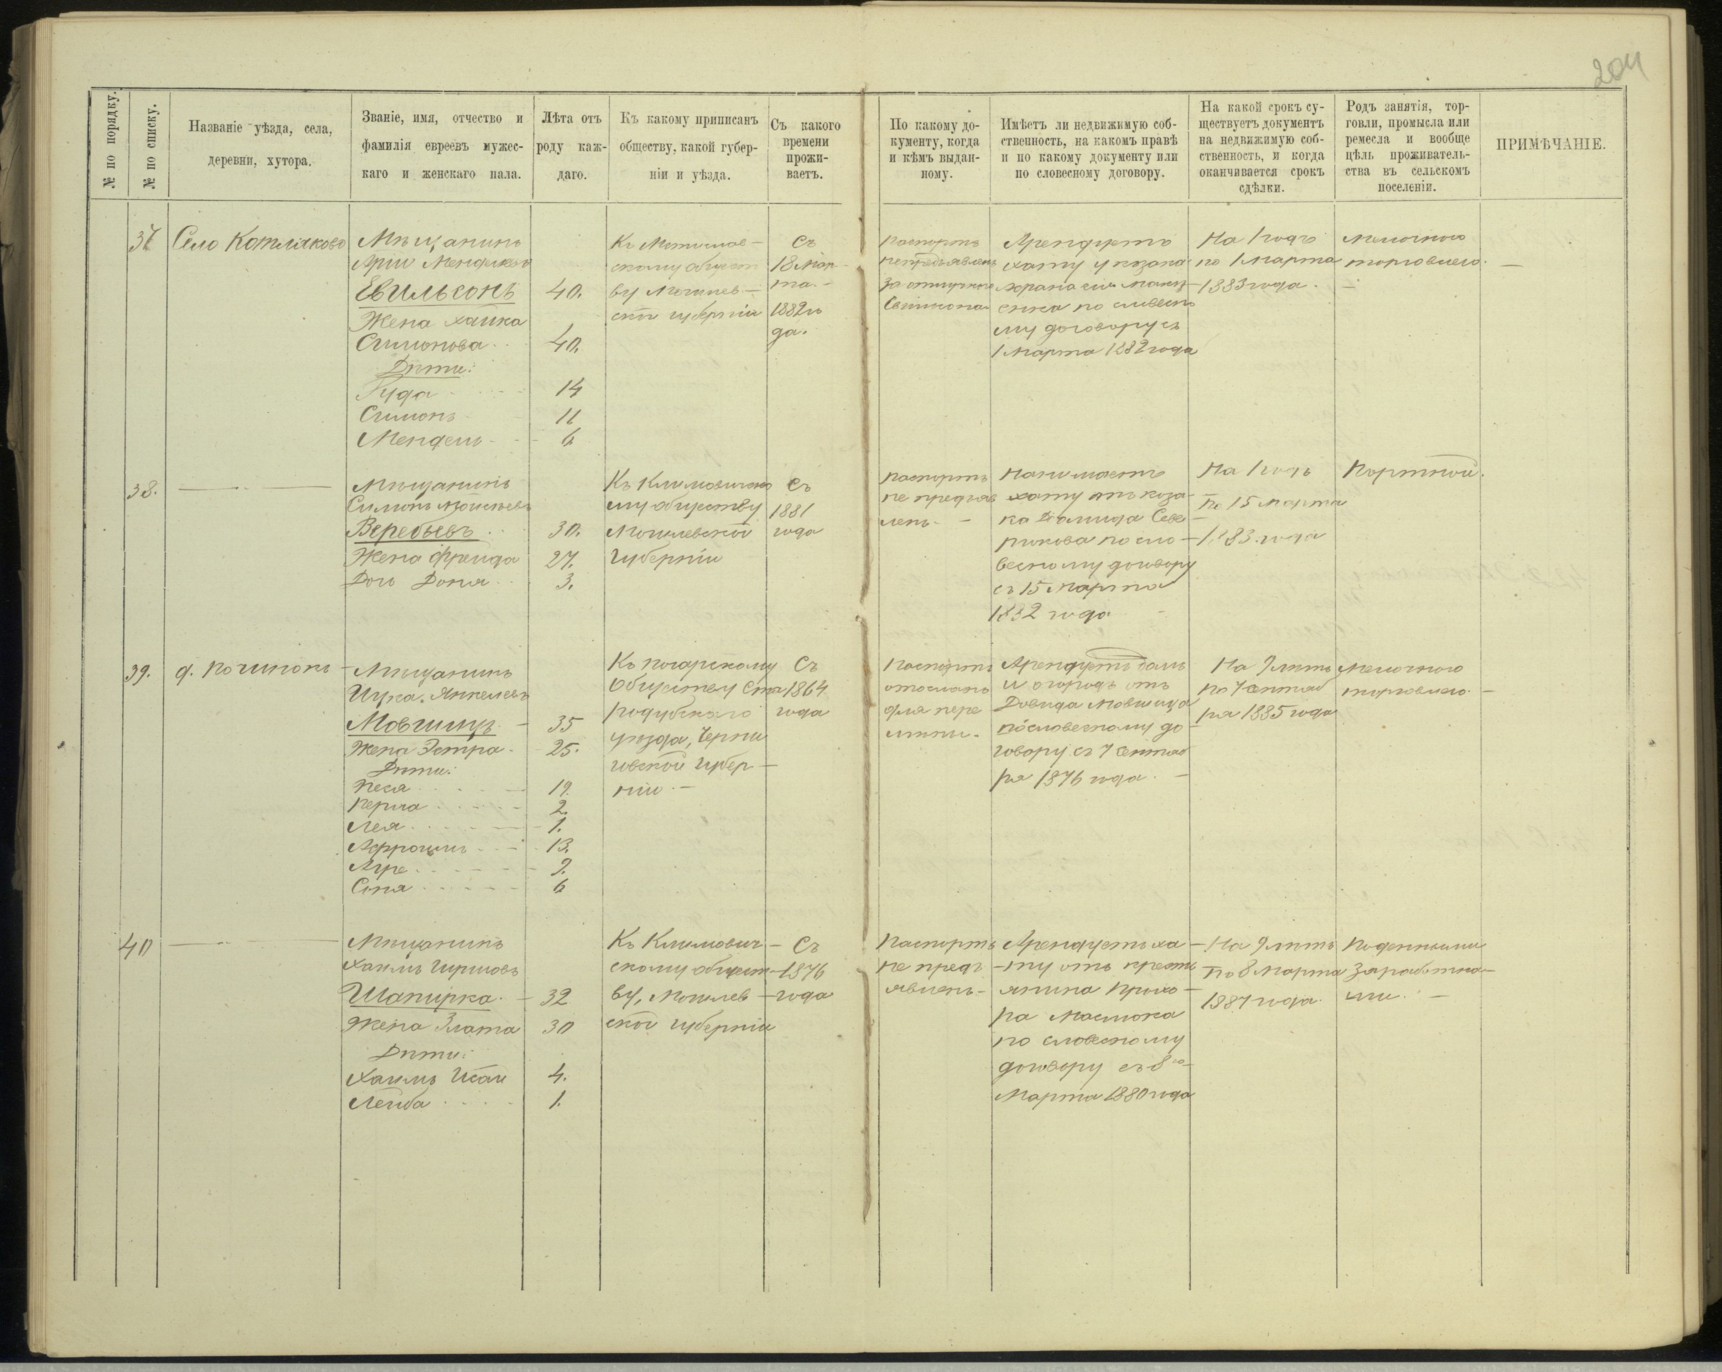 204
№ по порядку.
№ по списку.
Названіе уѣзда, села,
деревни, хутора.
Званіе, имя, отчество и
фамилія евреевъ мужес-
каго и женскаго пала.
Лѣта отъ
роду каж-
даго.
Къ какому приписанъ
обществу, какой губер-
ніи и уѣзда.
Съ какого
времени
прожи-
ваетъ.
По какому до-
кументу, когда
и кѣмъ выдан-
ному.
Имѣетъ ли недвижимую соб-
ственность, на какомъ правѣ
и по какому документу или
по словесному договору.
На какой срокъ су-
ществуетъ документъ
на недвижимую соб-
ственность, и когда
оканчивается срокъ
сдѣлки.
Родъ занятія, тор-
говли, промысла или
ремесла и вообще
цѣль проживатель-
ства въ сельскомъ
поселеніи.
ПРИМѢЧАНІЕ.
37
Село Котляково
Мѣщанинъ
Арій Менделевъ
40.
Жена Хайка
Симонова
40.
Дѣти:
14
Симонъ
11
Мендель
6
Къ Мстислав-
скому общест
ву Могилев-
ской губерніи
Съ
18 Мар-
та
1882 го
да.
Паспортъ
непредъявленъ
Арендуетъ
хату у козака
по словесно
му договору съ
1 Марта 1882 года
На 1 годъ
по 1 Марта
1883 года.
Мелочною
торговлею.
38.
Мѣщанинъ
Симонъ
Веребьевъ
30.
Жена Фрейда
27.
Дочь Доня
3.
Къ Климовичско
му обществу
Могилевской
Губерніи
Съ
1881
года
Паспортъ
не предъяв
ленъ
Нанимаетъ
хату отъ коза-
ка
по сло-
весному договору
съ 15 Марта
1882 года
На 1 годъ
по 15 Марта
1883 года
Портной.
39.
д. Починокъ
Мѣщанинъ
Ицка
Мовшицъ
35
Жена Эстра
25.
Дѣти:
Песя
Перла
2
Лея
1.
13.
9.
Соня
6
Къ Погарскому
Обществу Ста
родубскаго
уѣзда, Черни
говской Губер-
ніи
Съ
1864
года
Паспортъ
отосланъ
для пере
мѣны.
Арендуетъ домъ
и огородъ отъ
Давида Мовшица
по словесному до
говору съ 7 Сентяб
ря 1876 года
На 9 лѣтъ
по 7 Сентяб
ря 1885 года
Мелочною
торговлею
40
Мѣщанинъ
Хаимъ Гиршовъ
Шапирка
32
Жена Злата
30
Дѣти:
Хаимъ
4.
Лейба
1.
Къ Климович-
скому общест-
ву, Могилев-
ской губерніи
Съ
1876
года
Паспортъ
не предъ-
явленъ
Арендуетъ ха-
ту отъ кресть
янина Прохо-
ра
по словесному
договору съ 8го
Марта 1880 года
На 9 лѣтъ
по 8 Марта
1887 года
Поденными
заработка-
ми.